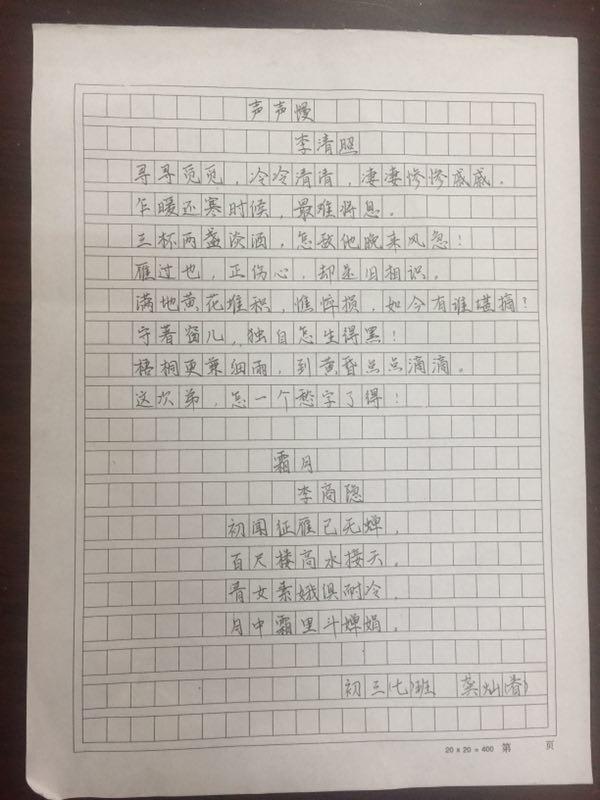 声声慢
李清照
寻寻觅觅，冷冷清清，凄凄惨惨戚戚。
乍暖还寒时候，最难将息。
三杯两盏淡酒，怎敌他晚来风急！
雁过也，正伤心，却是旧相识。
满地黄花堆积，憔悴损，如今有谁堪摘？
守着窗儿，独自怎生得黑！
梧桐更兼细雨，到黄昏点点滴滴。
这次第，怎一个愁字了得！
霜月
李商隐
初闻征雁已无蝉，
百尺楼高水接天。
青女素娥俱耐冷，
月中霜里斗婵娟。
初三(七)班 龚灿(春)
20×20=400 第 页